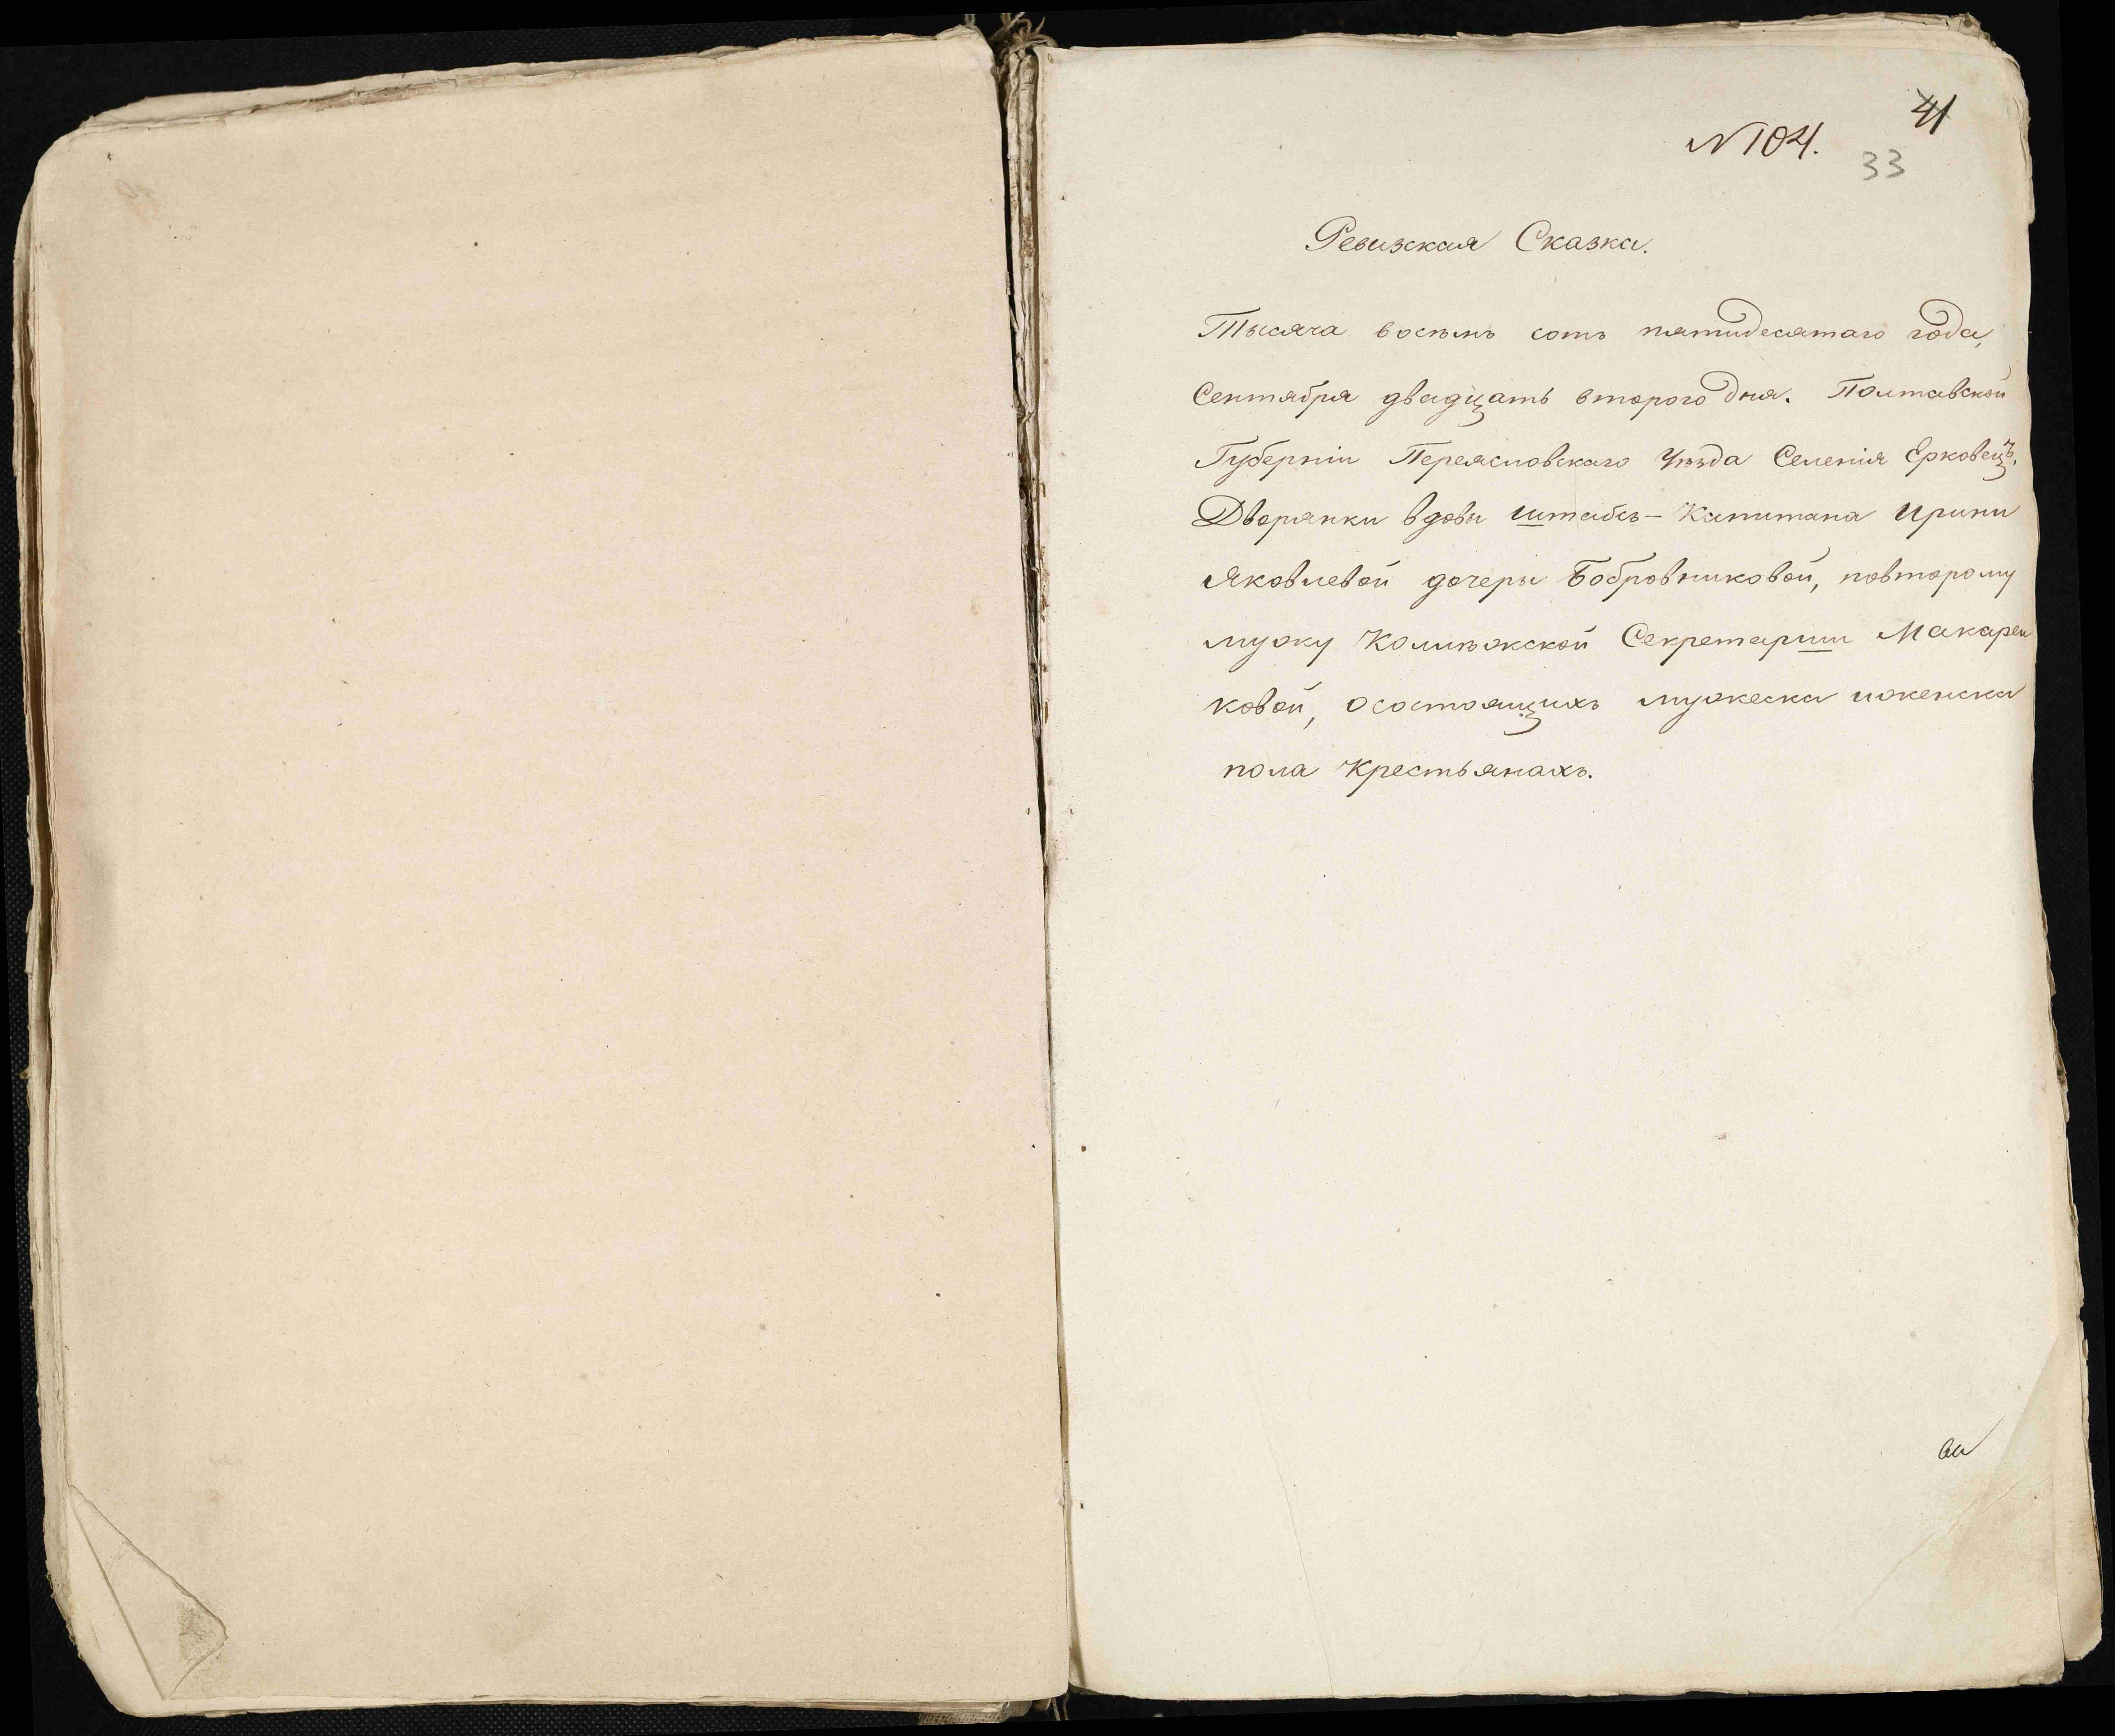 41
N 104.
33
Ревизская Сказка.
Тысяча восемь сотъ пятидесятаго года,
Сентября двадцать второго дня. Полтавской
Губерніи Переясловскаго Уѣзда Селенія Ерковецъ.
Дворянки вдовы штабсъ-Капитана Ирини
Яковлевой дочеры Бобровниковой, повторому
мужу Колѣжской Секретарши Макарен
ковой, осостоящихъ мужеска иженска
пола Крестьянахъ.